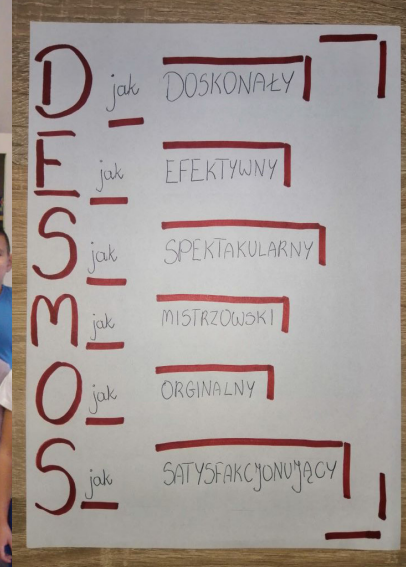 D jak DOSKONAŁY
E jak EFEKTYWNY
S jak SPEKTAKULARNY
M jak MISTRZOWSKI
O jak ORGINALNY
S jak SATYSFAKCJONUJĄCY